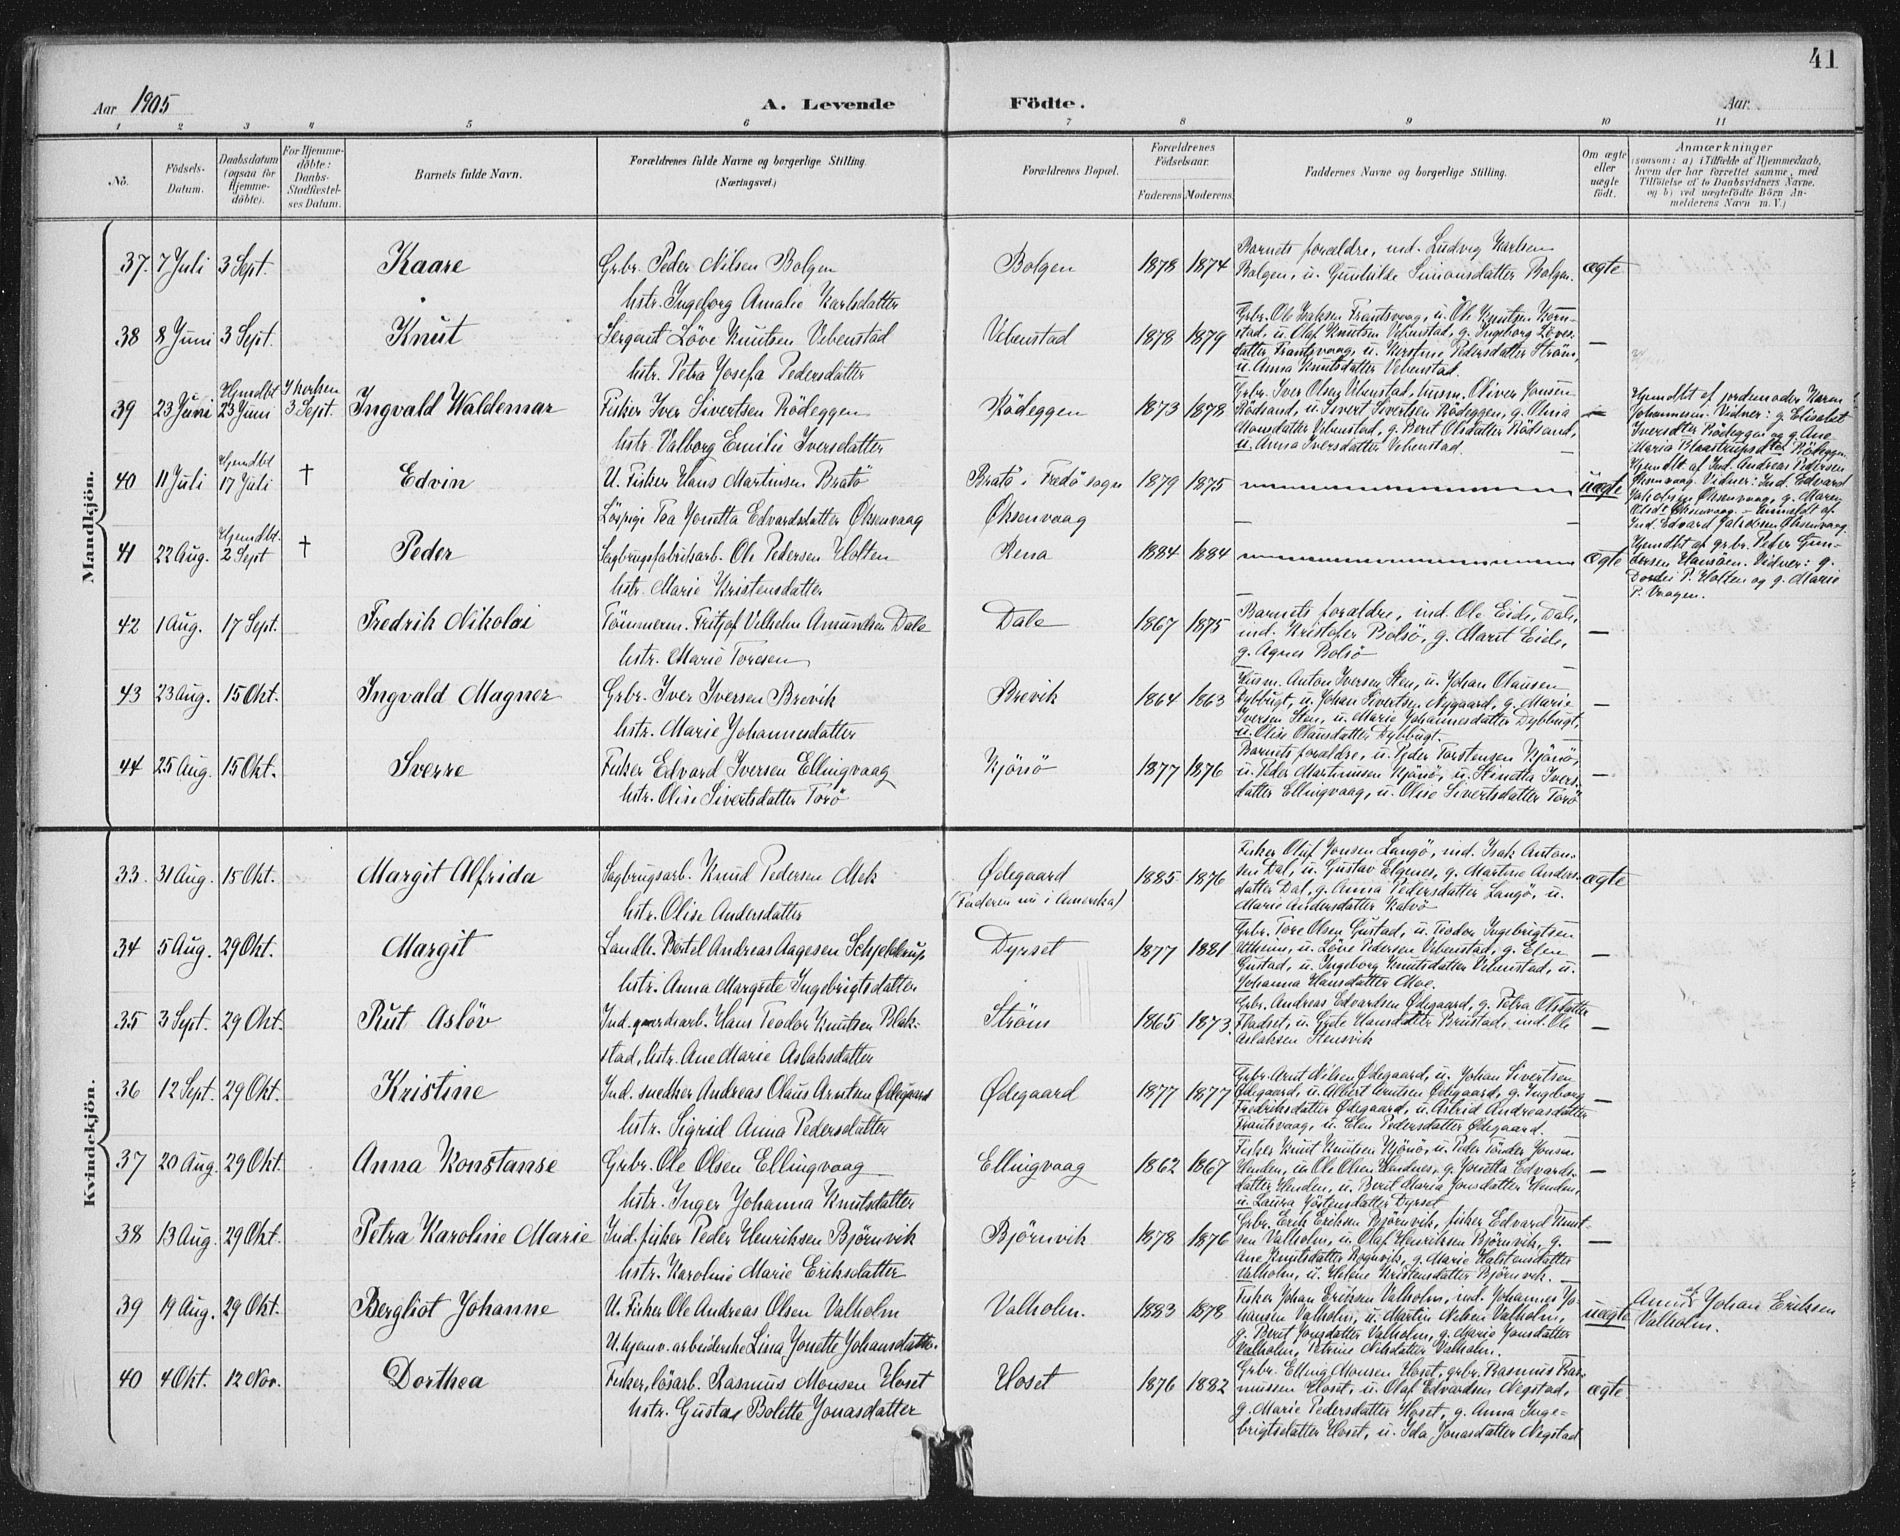 41
Aar 1905 A. Levende Födte. Aar.
1 2 3 4 5 6 7 8 9 10 11
No. Födsels-Datum. Daabsdatum (ogsaa for Hjemmedöbte). For Hjemmedöbte: Daabs-Stadfæstelses Datum. Barnets fulde Navn. Forældrenes fulde Navne og borgerlige Stilling. (Næringsvei.) Forældrenes Bopæl. Forældrenes Födselsaar. Faderens Moderens Faddernes Navne og borgerlige Stilling. Om ægte eller uægte födt. Anmærkninger (saasom: a) i Tilfælde af Hjemmedaab, hvem der har forrettet samme, med Tilföielse af to Daabsvidners Navne, og b) ved uægtefödte Börn Anmelderens Navn m. V.)
Mandkjön.
37. 7 Juli 3 Sept. Kaare Grbr. Peder Nilsen Bolgen
hstr. Ingeborg Amalie Karlsdatter
Bolgen 1878 1874
Barnets forældre, ind. Ludvig Karlsen
Bolgen, u. Gunhilde Simonsdatter Bolgen. ægte
38 8 Juni 3 Sept. Knut Sergent Löve Knutsen Vebenstad
hstr. Petra Josefa Pedersdatter
Vebenstad 1878 1879
Grbr. Ole Isaksen Frantsvaag, u. Ole Knutsen Korn-
stad, u. Olaf Knutsen Vebenstad, g. Ingeborg Löves-
datter Frantsvaag, u. Kerstine Pedersdatter Ström,
u. Anna Knutsdatter Vebenstad. —
39 23 Juni Hjmdbt 23 Juni I kerken 3 Sept. Ingvald Waldemar Fisker Iver Sivertsen Rödeggen
hstr. Valborg Emilie Iversdatter
Rödeggen 1873 1878
Grbr. Iver Olsen Vebenstad, husm. Oliver Jonsen
Rödsand, u. Sivert Sivertsen Rödeggen, g. Olina
Hansdatter Vebenstad, g. Beret Olsdatter Rödsand,
u. Anna Iversdatter Vebenstad. —
Hjemdbt af jordemoder Karen
Johannesen. Vidner: g. Elisabet
Iversdtter Rödeggen og g. Ane
Maria Blaastrupsdtter Rödeggen.
40 11 Juli Hjemdbt 17 Juli † Edvin U. Fisker Hans Martinsen Bratö
Löspige Taa Jonetta Edvardsdatter Øksenvaag
Bratö i Fredö sogn
Øksenvaag
1879 1875 uægte
Hjemdbt af Ind. Andreas Pedersen
Øksenvaag. Vidner: Ind. Edvard
Jakobsen Øksenvaag, g. Maren
Olsdt Øksenvaag. – Anmeldt af
Ind. Edvard Jakobsen Øksenvaag.
41 22 Aug. Hjemdbt. 2 Sept † Peder Sagbrugsfabriksarb. Ole Pedersen Holten
hstr. Marie Kristensdatter
Rena 1884 1884 ægte
Hjemdbt af grbr. Peder Gun-
dersen Hansöen. Vidner: g.
Dordei P. Holten og g. Marie
P. Vaagen.
42 1 Aug. 17 Sept. Fredrik Nikolai Tömmerm. Fritjof Vilhelm Amundsen Dale
hstr. Marie Toresen
Dale 1867 1875
Barnets forældre, ind. Ole Eide, Dale,
ind. Kristofer Bolsö, g. Marit Eide,
g. Agnes Bolsö —
43 23 Aug. 15 Okt. Ingvald Magner Grbr. Iver Iversen Brevik
hstr. Marie Johannesdatter
Brevik 1864 1863
Husm. Anton Iversen Sten, u. Johan Olausen
Dybbugt, u. Johan Sivertsen Nygaard, g. Marie
Iversen Sten, u. Marie Johannesdatter Dybbugt,
u. Olise Olausdatter Dybbugt. —
44 25 Aug. 15 Okt. Sverre Fisker Edvard Iversen Ellingvaag
hstr. Olise Sivertsdatter Torö
Kjönö 1877 1876
Barnets forældre, u. Peder Torstensen Kjönö,
u. Peder Martinusen Kjönö, u. Stinetta Ivers-
datter Ellingvaag, u. Olise Sivertsdatter Torö —
Kvindekjön.
33. 31 Aug. 15 Okt. Margit Alfrida Sagbrugsarb. Knud Pedersen Mek
hstr. Olise Andersdatter
Ødegaard
(Faderen nu i Amerika)
1885 1876
Fisker Oluf Jonsen Langö, ind. Isak Anton-
sen Dal, u. Gustav Elgenes, g. Martine Anders-
datter Dal, g. Anna Pedersdatter Langö, u.
Marie Andersdatter Kalvö ægte
34 5 Aug. 29 Okt. Margit Landh. Bertel Andreas Aagesen Schjelderup
hstr. Anna Margrete Ingebrigtsdatter
Dyrset 1877 1881
Grbr. Tore Olsen Gustad, u. Teodor Ingebrigtsen
Utheim, u. Löve Pedersen Vebenstad, g. Elen
Gustad, u. Ingeborg Knutsdatter Vebenstad, u.
Johanna Hansdatter Moe. —
35 3 Sept. 29 Okt. Rut Asløv Ind. gaardsarb. Hans Teodor Knutsen Blek-
stad, hstr. Ane Marie Aslaksdatter
Ström 1865 1873.
Grbr. Andreas Edvardsen Ødegaard, g. Petra Olsdatter
Fladset, u. Gyde Hansdatter Brustad, ind. Ole
Aslaksen Stensvik —
36 12 Sept. 29 Okt. Kristine Ind. snedker Andreas Olaus Arntsen Ødegaard
hstr. Sigrid Anna Pedersdatter
Ødegaard 1877 1877
Grbr. Arnt Nilsen Ødegaard, u. Johan Sivertsen
Ødegaard, u. Albert Arntsen Ødegaard, g. Ingeborg
Fredriksdatter Ødegaard, u. Astrid Andreasdatter
Frantsvaag, u. Elen Pedersdatter Ødegaard. —
37 20 Aug. 29 Okt. Anna Konstanse Grbr. Ole Olsen Ellingvaag
hstr. Inger Johanna Knutsdatter
Ellingvaag 1862 1867
Fisker Knut Knutsen Kjönö, u. Peder Tönder Jonsen
Henden, u. Ole Olsen Hendnes, g. Jonetta Edvards-
datter Henden, u. Berit Maria Jonsdatter Henden,
u. Laura Jöstensdatter Dyrset —
38 13 Aug. 29 Okt. Petra Karoline Marie Ind. fisker Peder Henriksen Björnvik
hstr. Karoline Marie Eriksdatter
Björnvik 1878 1876
Grbr. Erik Eriksen Björnvik, fisker Edvard Knut-
sen Valholm, u. Olaf Henriksen Björnvik, g.
Ane Knutsdatter Rognvik, g. Marie Halstensdatter
Valholm, u. Helene Kristensdatter Björnvik. —
39 19 Aug. 29 Okt. Bergliot Johanne U. Fisker Ole Andreas Olsen Valholm
U. hjemv. arbeiderske Lina Jonette Johansdatter.
Valholm. 1883 1878
Fisker Johan Eriksen Valholm, ind. Johannes Jo-
hansen Valholm, u. Martin Nilsen Valholm,
g. Beret Jonsdatter Valholm, g. Marie Jonsdatter
Valholm, Petrine Nilsdatter Valholm. uægte
Anm. af Johan Eriksen
Valholm.
40 4 Okt. 12 Nov. Dorthea Fisker, lösarb. Rasmus Monsen Hoset
hstr. Gustav Bolette Jonasdatter
Hoset 1876 1882
Grbr. Elling Monsen Hoset, grbr. Rasmus Ras-
mussen Hoset, u. Olaf Edvardsen Negstad,
g. Marie Pedersdatter Hoset, g. Anna Inge-
brigtsdatter Hoset, u. Ida Jonasdatter Negstad ægte